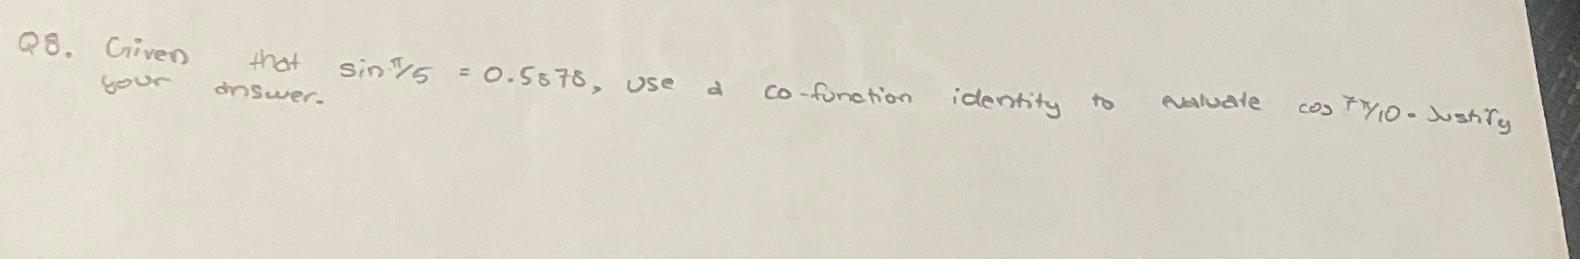 Q8. Given that sin π/5 = 0.5878, use a co-function identity to evaluate cos 7π/10. Justify
your answer.